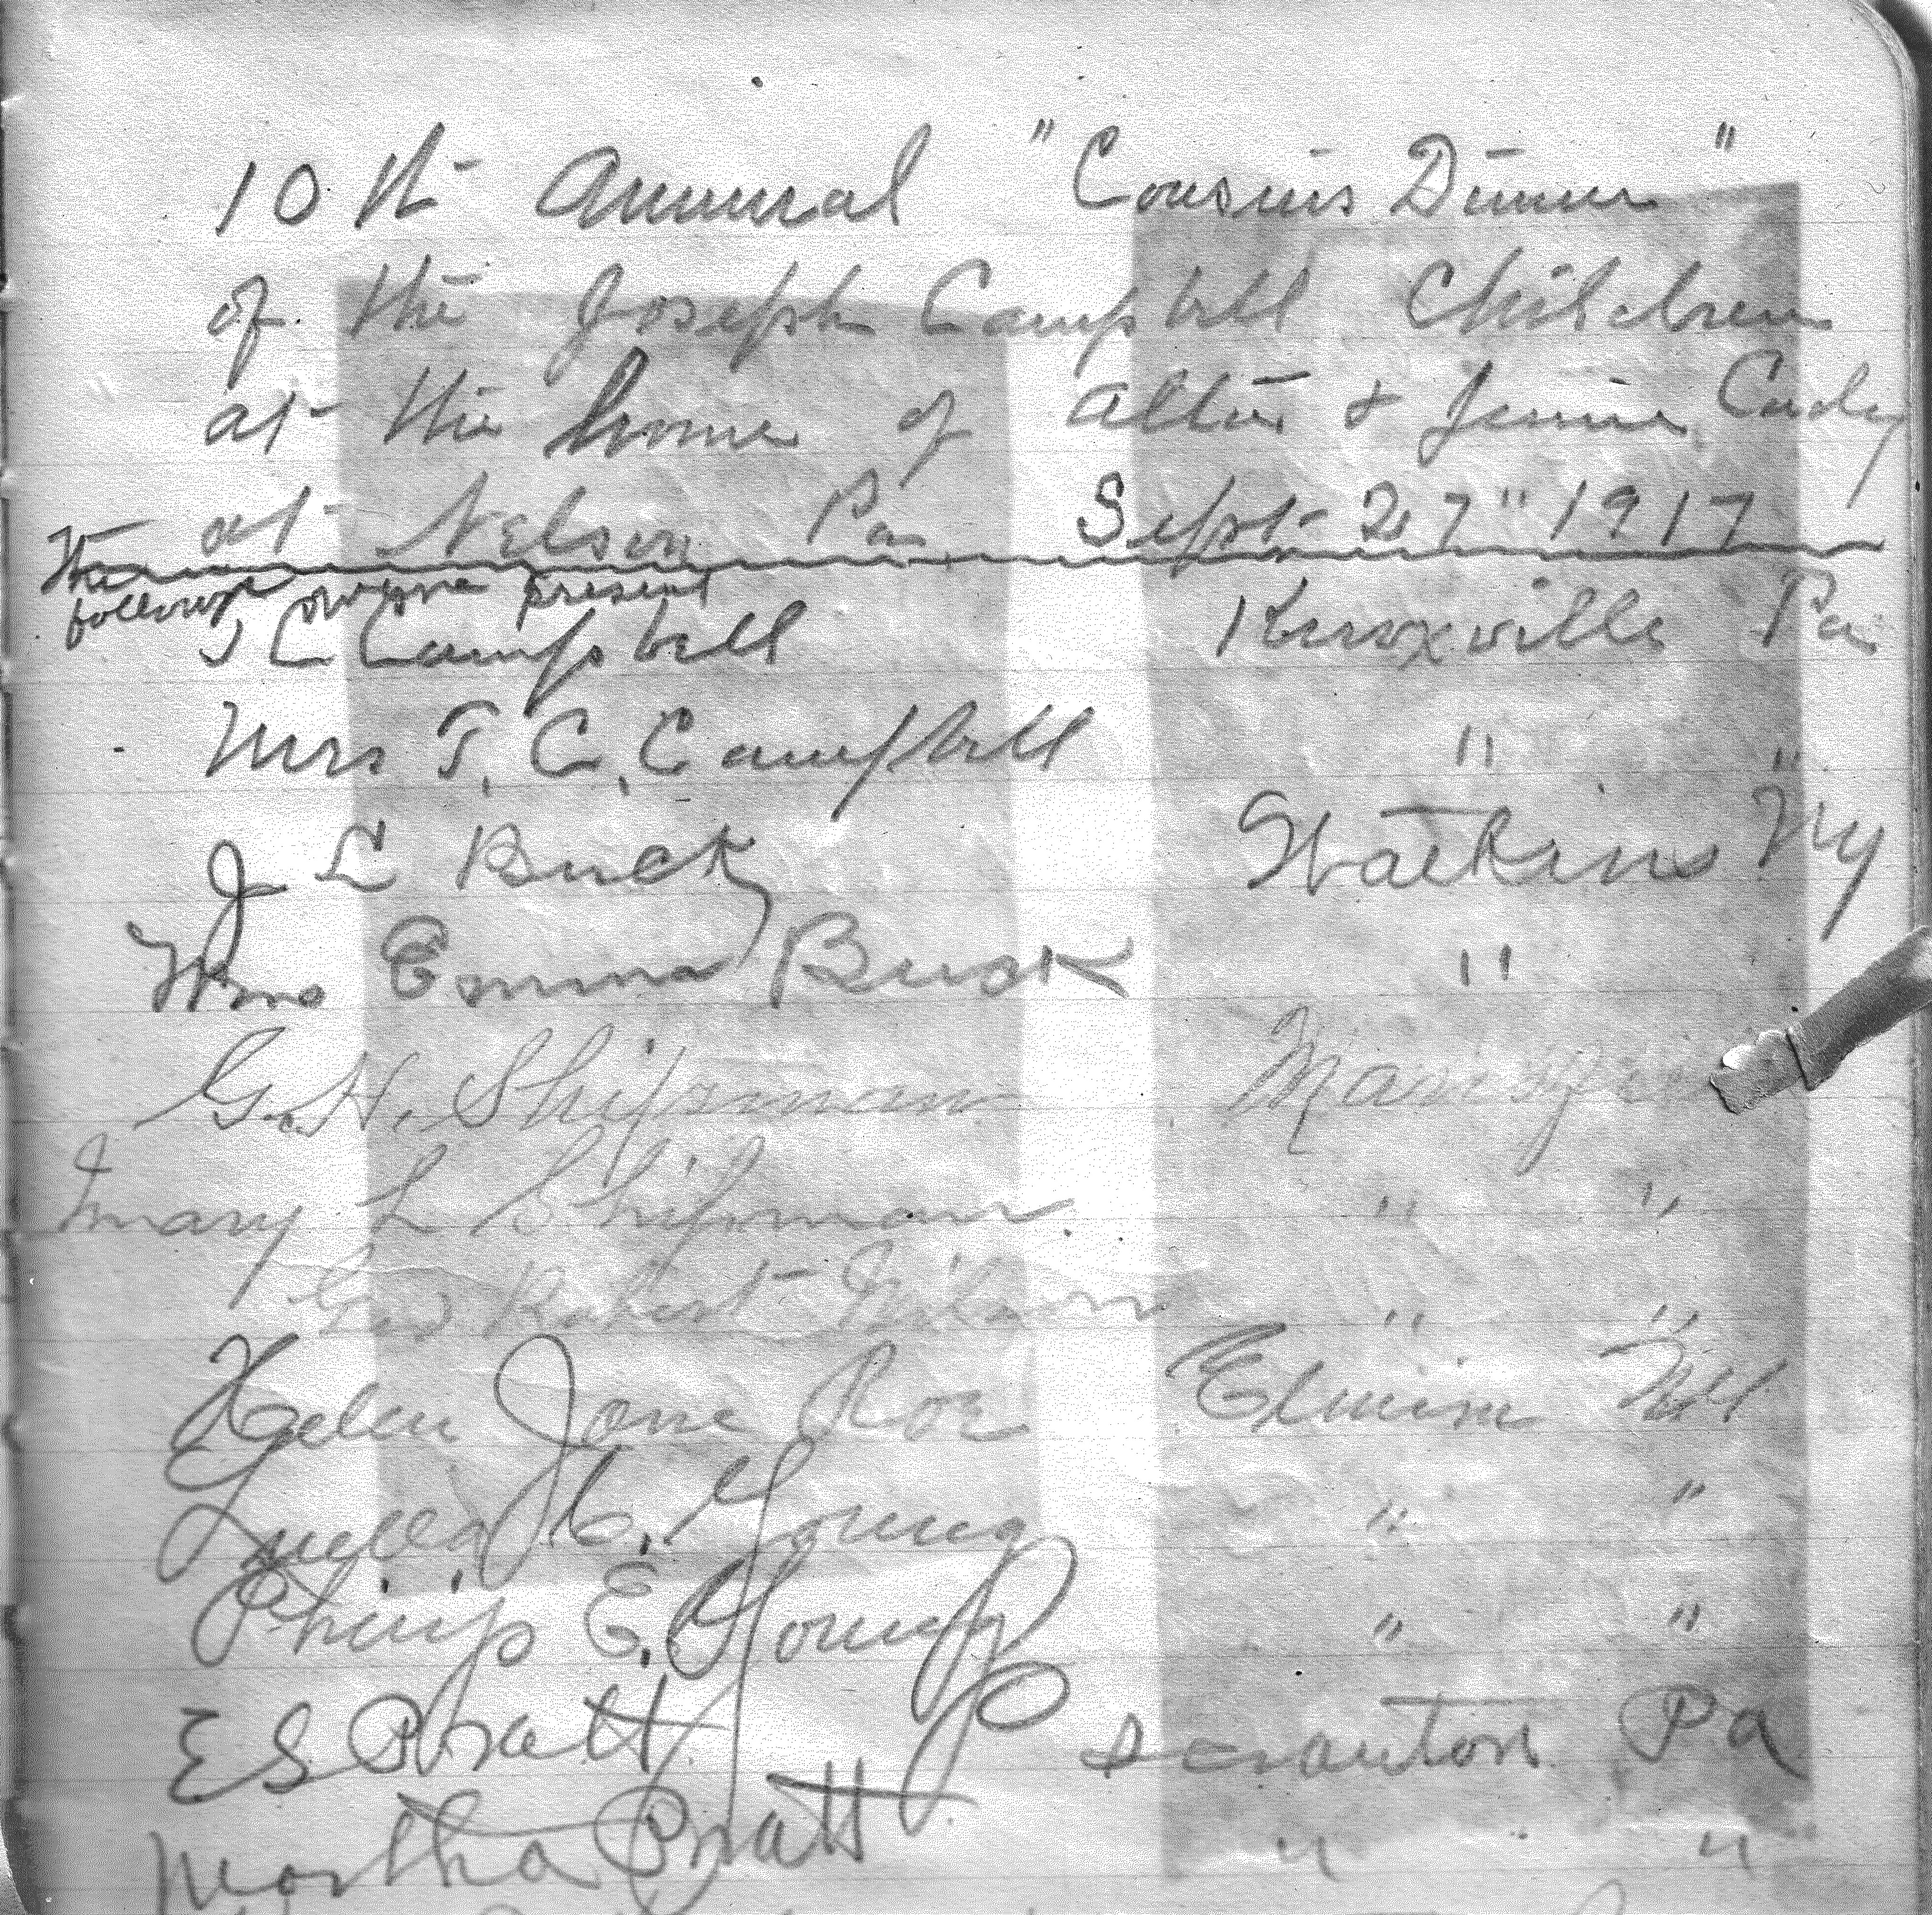 10th Annual "Cousins Dinner"
of the Joseph Campbell Children
at the home of Allie & Jennie Cady
at Nelson Pa Sept 27" 1917
The
following were present
T C Campbell Knoxville Pa
Mrs T. C. Campbell " "
J L Buck Watkins NY
Mrs Emma Buck "
G. H. Shipman
Mary L Shipman. " "
Robert " "
Helen Jane Roe Elmira NY
Luella C. Young " "
Philip E. Young " "
E S Pratt Scranton Pa
Martha Pratt " "